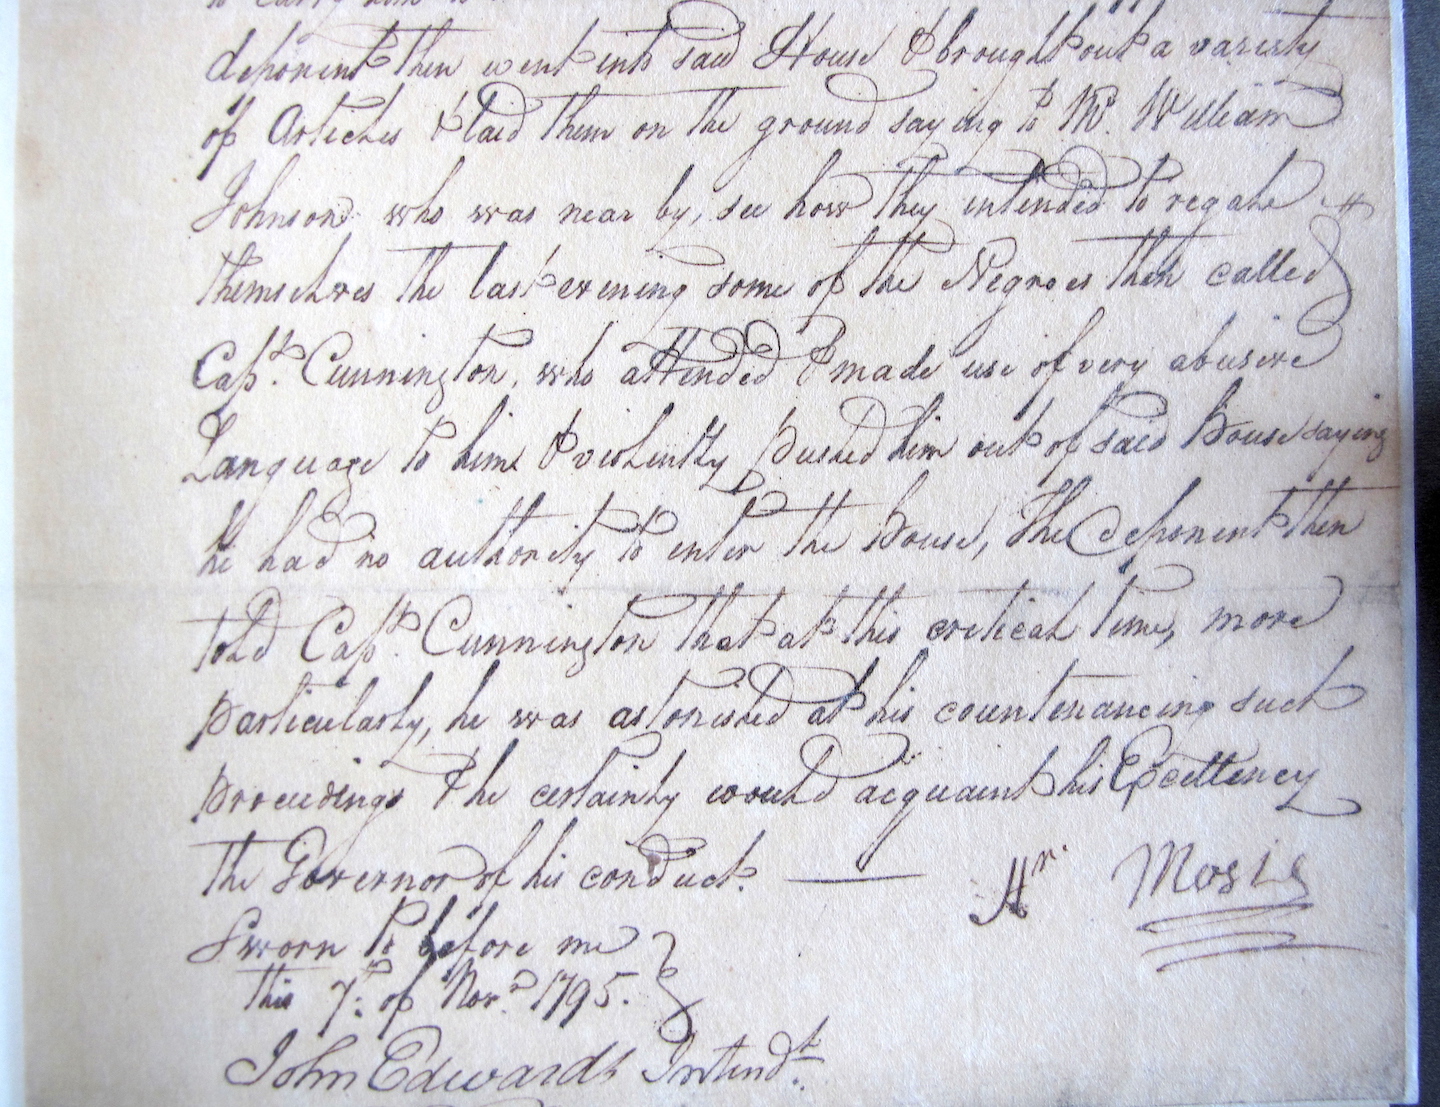 to carry him to
deponent then went into said House & brought out a variety
of Articles & laid them on the ground saying to Mr. William
Johnson, who was near by, see how they intended to regale
themselves the last evening some of the Negroes then called
Capt. Cunnington, who attended & made use of very abusive
Language to him & violently pushed him out of said House saying
he had no authority to enter the House, The deponent then
told Capt. Cunnington that at this critical time, more
particularly, he was astonished at his countenancing such
proceedings & he certainly would acquaint his Excellency
the Governor of his conduct. —— Mr. Moses
Sworn to before me
this 7th. of Novr. 1795.
John Edwards Intendt.